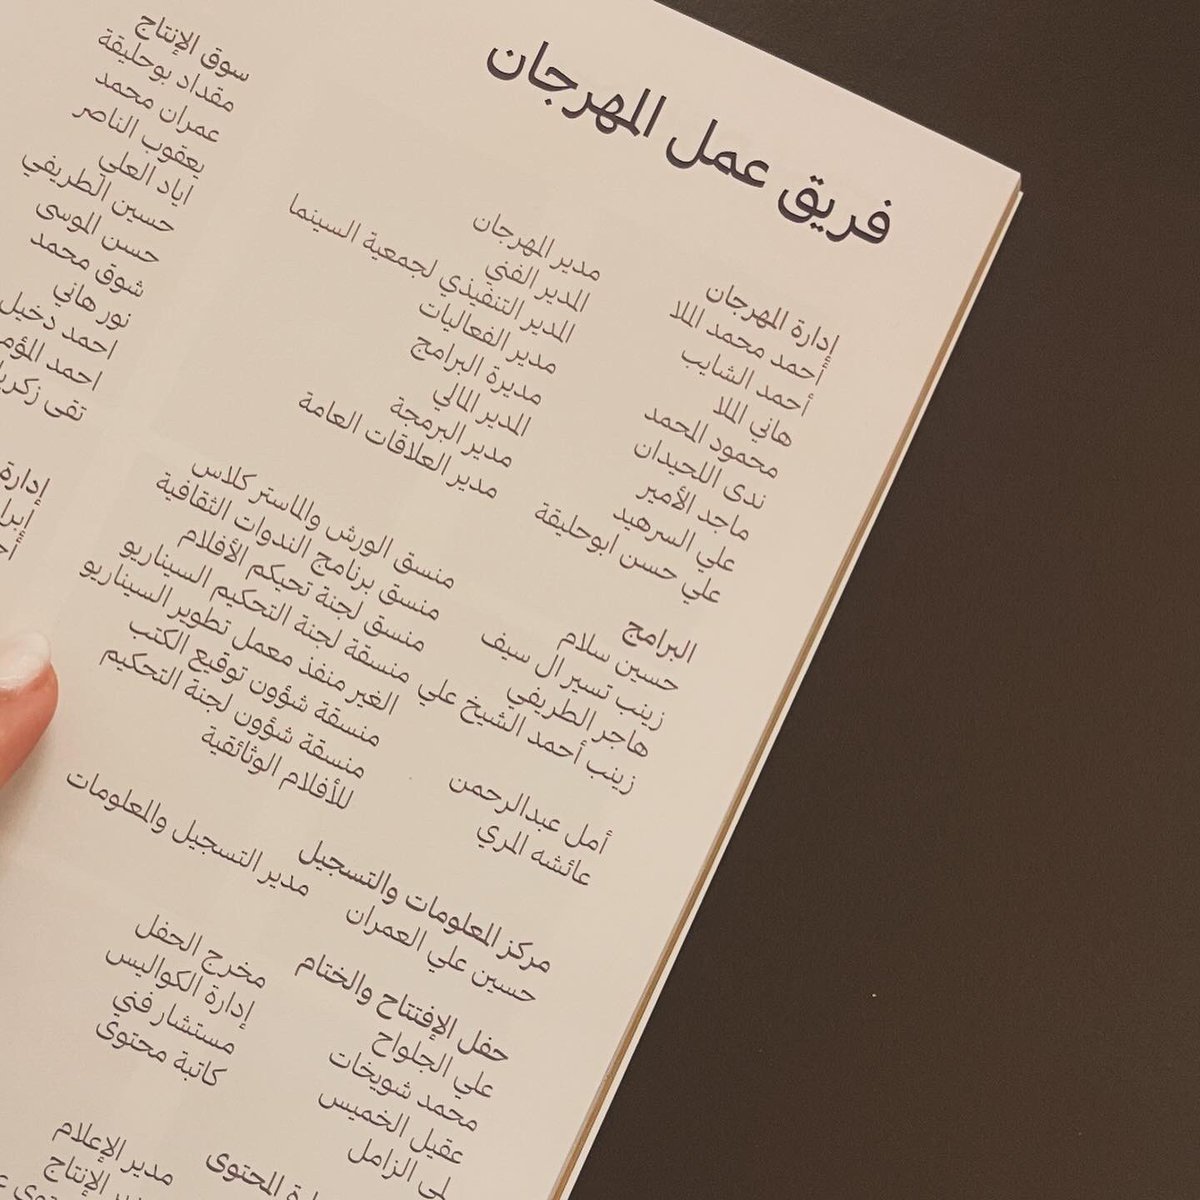 فريق عمل المهرجان
إدارة المهرجان
أحمد محمد الملا مدير المهرجان
أحمد الشايب المدير الفني
هاني الملا المدير التنفيذي لجمعية السينما
محمود المحمد مدير الفعاليات
ندى اللحيدان مديرة البرامج
ماجد الأمير المدير المالي
علي السرهيد مدير البرمجة
علي حسن ابوحليقة مدير العلاقات العامة
البرامج
حسين سلام منسق الورش والماستر كلاس
زينب تسير ال سيف منسق برنامج الندوات الثقافية
هاجر الطريفي منسق لجنة تحيكم الأفلام
زينب أحمد الشيخ علي منسقة لجنة التحكيم السيناريو
الغير منفذ معمل تطوير السيناريو
أمل عبدالرحمن منسقة شؤون توقيع الكتب
عائشه المري منسقة شؤون لجنة التحكيم
للأفلام الوثائقية
مركز المعلومات والتسجيل
حسين علي العمران مدير التسجيل والمعلومات
حفل الإفتتاح والختام
علي الجلواح مخرج الحفل
محمد شويخات إدارة الكواليس
عقيل الخميس مستشار فني
الزامل كاتبة محتوى
المحتوى
مدير الإعلام
الإنتاج
سوق الإنتاج
مقداد بوحليقة
عمران محمد
يعقوب الناصر
اياد العلي
حسين الطريفي
حسن الموسى
شوق محمد
نور هاني
احمد دخيل
احمد
تقى
إدارة